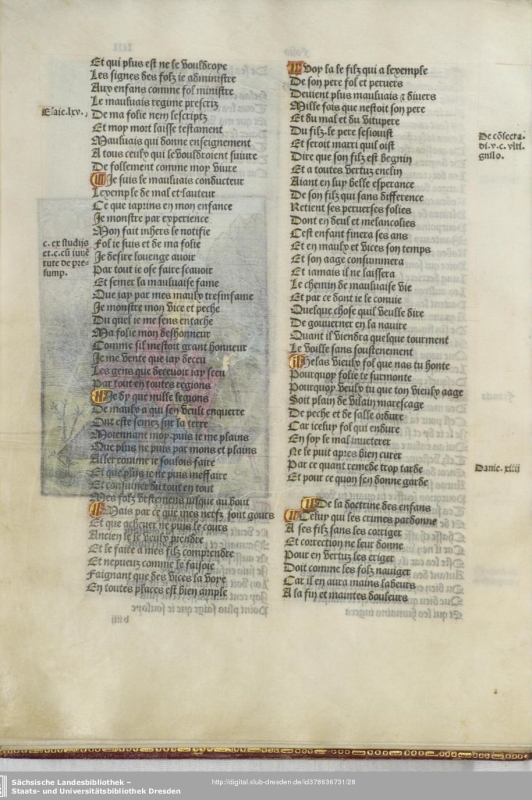 Et qui plus est ne se vouldroye
Les signes des folz ie administre
Aux enfans comme fol ministre
Le mauluais regime prescriz
Esaie.lxv.
De ma folie nem rescriptz
Et moy mort laisse testament
Mauluais qui donne enseignement
A tous ceulx qui se vouldroient suiure
De follement comme moy viure
Je suis le mauluais conducteur
Lexemple de mal et fauteur
Ce que iaprins en mon enfance
Je monstre par experience
Mon fait inhers le notifie
c. ex studijs
et.c.cū iuuē
tute de pre-
sump.
Fol ie suis et de ma folie
Je desire louenge auoir
Par tout ie ose faire scauoir
Et semer la mauluaise fame
Que iay par mes maulx tresinfame
Je monstre mon vice et peche
Du quel ie me sens entache
Ma folie mon deshonneur
Comme sil mestoit grant honneur
Je me vente que iay deceu
Les gens que deceuoir iay sceu
Par tout en toutes regions
Je dy que mille legions
De maulx a qui sen veult enquerre
Ont este semez sur la terre
Moiennant moy.puis ie me plains
Que plus ne puis par mons et plains
Aller comme ie soulois faire
Et que plus ie ne puis meffaire
Et consuiure du tout en tout
Mes folz destemens iusque au bout
Mais par ce que mes nerfz sont gours
Et que acheuer ne puis le cours
Ancien ie le voulx prendre
Et le faire a mes filz comprendre
Et nepueux comme le faisoie
Faignant que des vices la voye
En toutes places est bien ample
Voy la le filz qui a lexemple
De son pere fol et peruers
Deuient plus mauluais ⁊ diuers
Mille fois que nestoit son pere
Et du mal et du vitupere
De cōsecra.
di.v.c. vlti.
gnilo.
Du filz.le pere sesiouist
Et seroit marri quil oist
Dire que son filz est begnin
Et a toutes vertuz enclin
Aiant en luy belle esperance
De son filz qui sans difference
Retient ses peruerses folies
Dont en deul et melancolies
Cest enfant finera ses ans
Et en maulx et vices son temps
Et son aage consummera
Et iamais il ne laissera
Le chemin de mauluaise vie
Et par ce dont ie le conuie
Quelque chose quil veulle dire
De gouuerner en la nauire
Quant il viendra quelque tourment
Le voille sans soustenement
Helas vieulx fol que nas tu honte
Pourquoy folie te surmonte
Pourquoy veulx tu que ton vieulx aage
Soit plain de vilain marescage
De peche et de salle ordure
Car icelluy fol qui endure
En soy le mal inueterer
Ne le puit apres bien curer
Danie. xiii
Par ce quant remede trop tarde
Et pour ce quon sen donne garde
De la doctrine des enfans
Celuy qui les crimes pardonne
A ses filz sans les corriger
Et correction ne leur donne
Pour en vertuz les eriger
Doit comme les folz nauiger
Car il en aura mains labeurs
A la fin et maintes douleurs
Sächsische Landesbibliothek –
Staats- und Universitätsbibliothek Dresden
http://digital.slub-dresden.de/id378636731/28